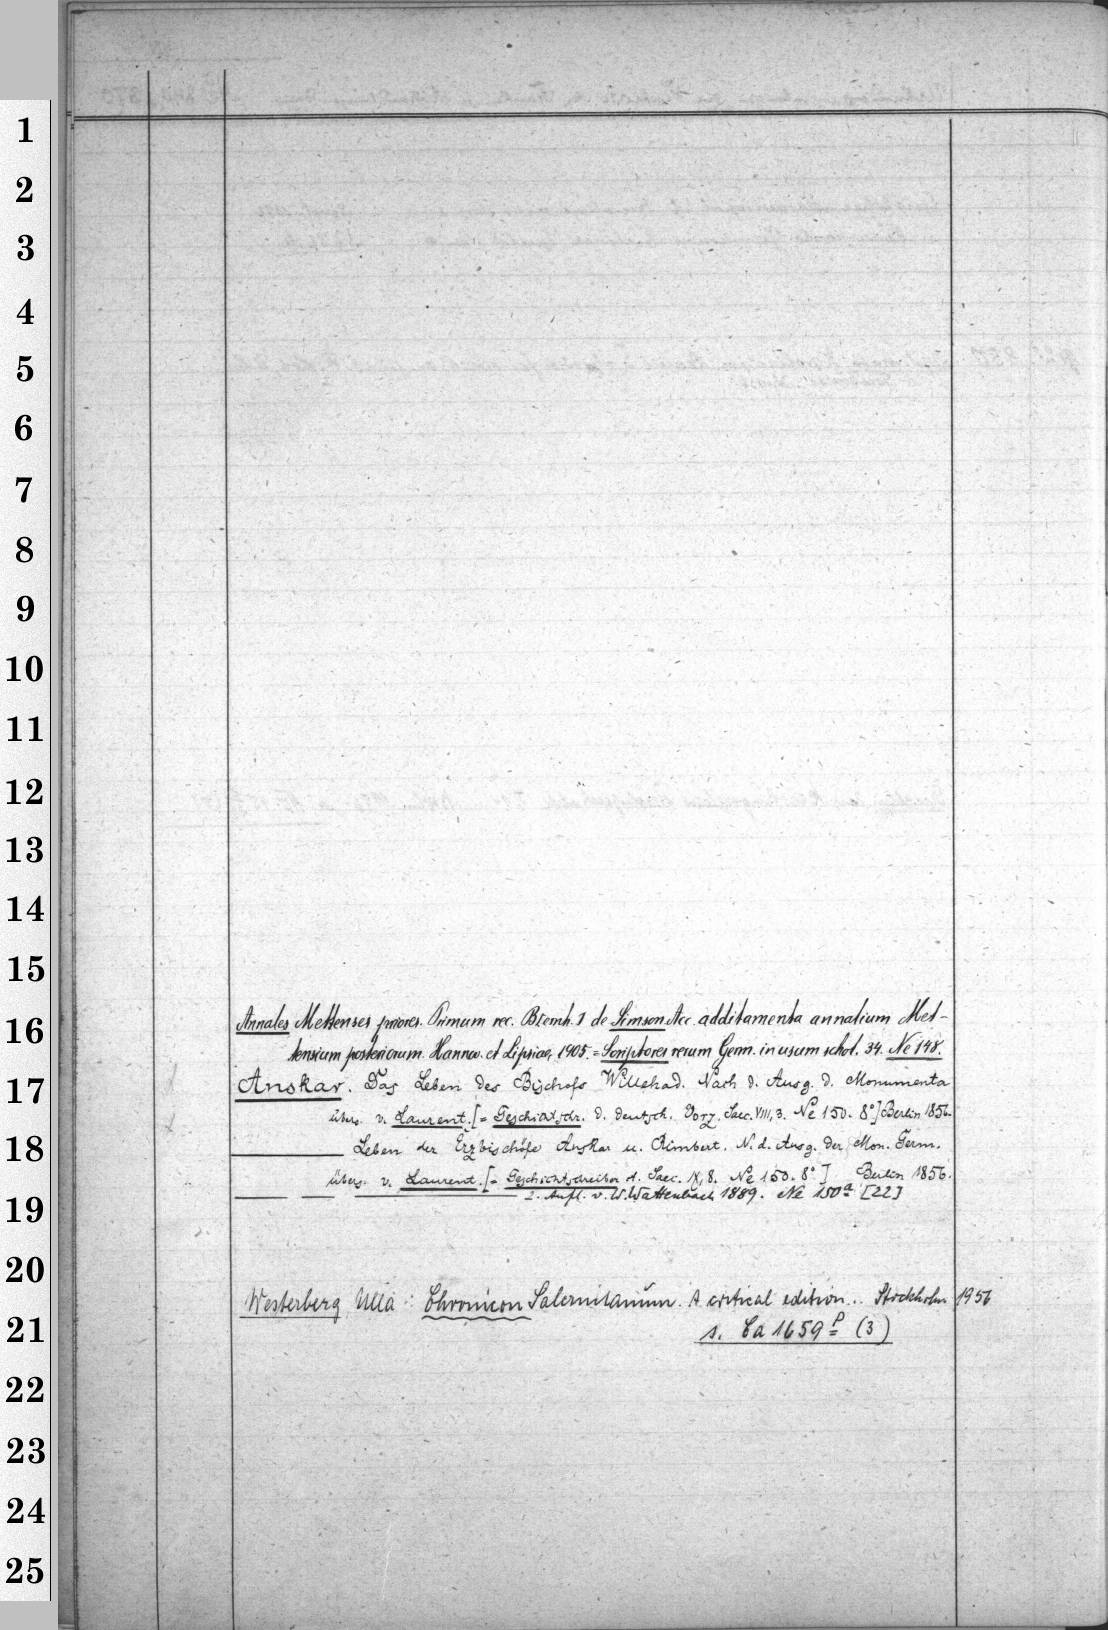 1
2
3
4
5
6
7
8
9
10
11
12
13
14
15
16
Annales Mettenses priores. Primum rec. B. de Simson Acc. additamenta annalium Met-
tensium posteriorum. Hannov. et Lipsiae, 1905. = Scriptores rerum Germ. in usum schol. 34. Ne 148.
17
Anskar. Das Leben des Bischofs Willehad. Nach d. Ausg. d. Monumenta
übers. v. Laurent. [= Geschichtschr. d. deutsch. Vorz. Saec. VIII, 3. Ne 150. 8°] Berlin 1856.
18
Leben der Erzbischöfe Anskar u. Rimbert. N. d. Ausg. der Mon. Germ.
übers. v. Laurent. [= Geschichtschreiber d. Saec. IX, 8. Ne 150. 8°] Berlin 1856.
19
2. Aufl. v. W. Wattenbach 1889. Ne 150a [22]
20
Westerberg, Ulla: Chronicon Salernitanum. A critical edition.. Stockholm 1956
21
s. Ca 1659p (3)
22
23
24
25